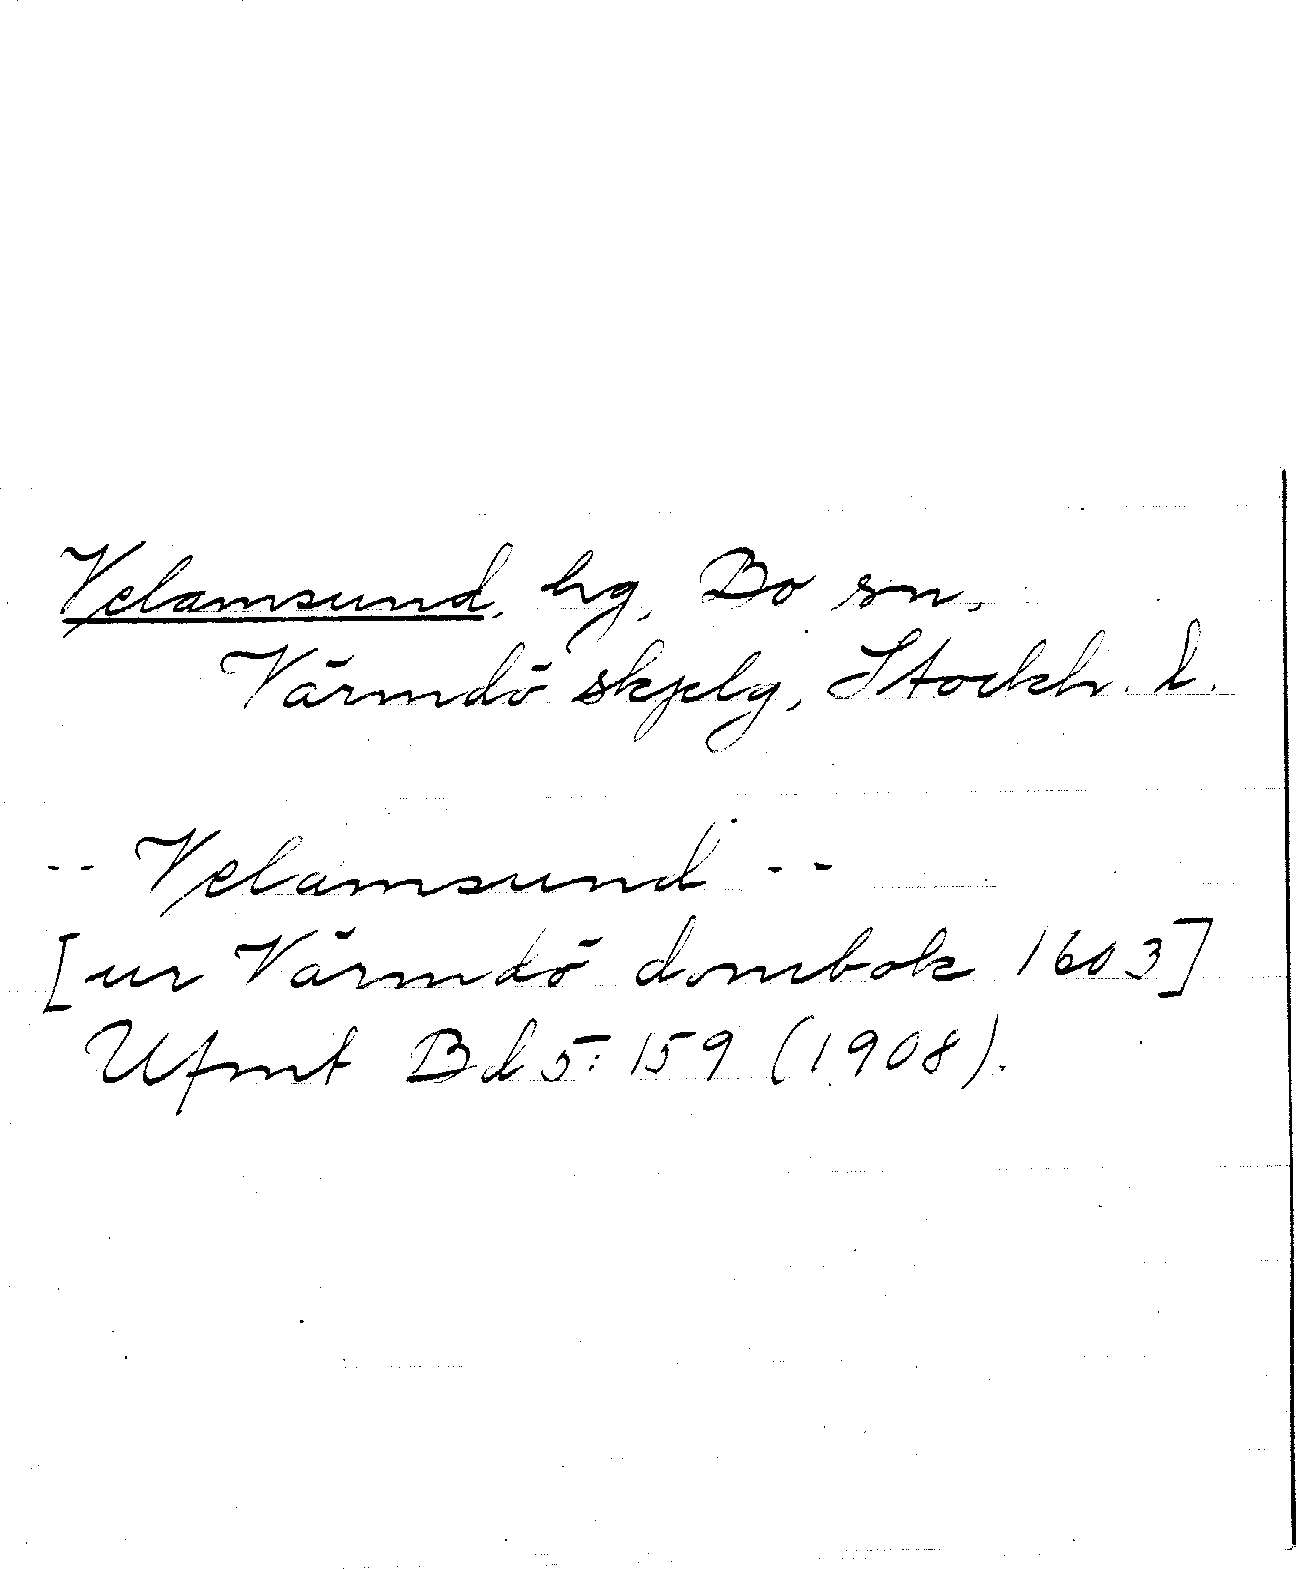 Velamsund, hg, Bo sn,
Värmdö skjelg, Stockh. l.
-- Velamsund --
[ur Värmdö dombok 1603]
Ufmt Bd 5: 159 (1908).